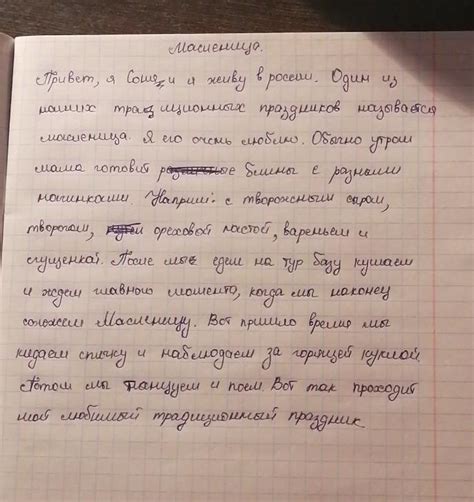 Масленица.
Привет, я Соня, и я живу в россии. Один из
наших традиционных праздников называется
масленица. Я его очень люблю. Обычно утром
мама готовит блины с разными
начинками. Наприм: с творожным сыром,
творогом, ореховой пастой, вареньем и
сгущенкой. После мы едем на тур базу кушаем
и ждем главного момента, когда мы наконец
сожжем Масленицу. Вот пришло время мы
кидаем спичку и наблюдаем за горящей куклой.
Потом мы танцуем и поем. Вот так проходит
мой любимый традиционный праздник